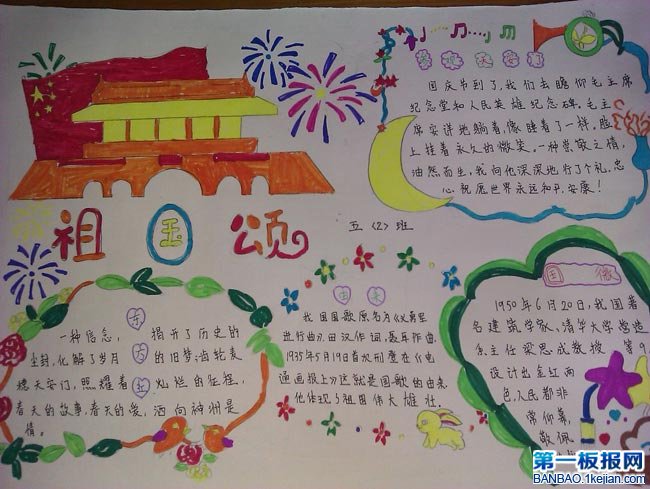 参观天安门
国庆节到了,我们去瞻仰毛主席
纪念堂和人民英雄纪念碑。毛主
席安详地躺着,像睡着了一样。脸
上挂着永久的微笑。一种崇敬之情,
油然而生,我向他深深地行了个礼,忠
心祝愿世界永远和平,安康!
祖国颂
五〈2〉班
一种信念, 揭开了历史的
尘封,化解了岁月 的旧梦;齿轮麦
穗天安门,照耀着 灿烂的征程,
春天的故事,春天的爱,洒向神州是
情。
国关
我国国歌原名为《义勇军
进行曲》,田汉作词,聂耳作曲,
1935年5月19日首次刊在《电
通画报上》这就是国歌的由来
他体现了祖国伟大雄壮.
国徽
1950年6月20日,我国著
名建筑学家、清华大学营造
系主任梁思成教授 等9
设计出金红两
色,人民都非
常仰慕,
敬佩
第一板报网
BANBAO.1kejian.com